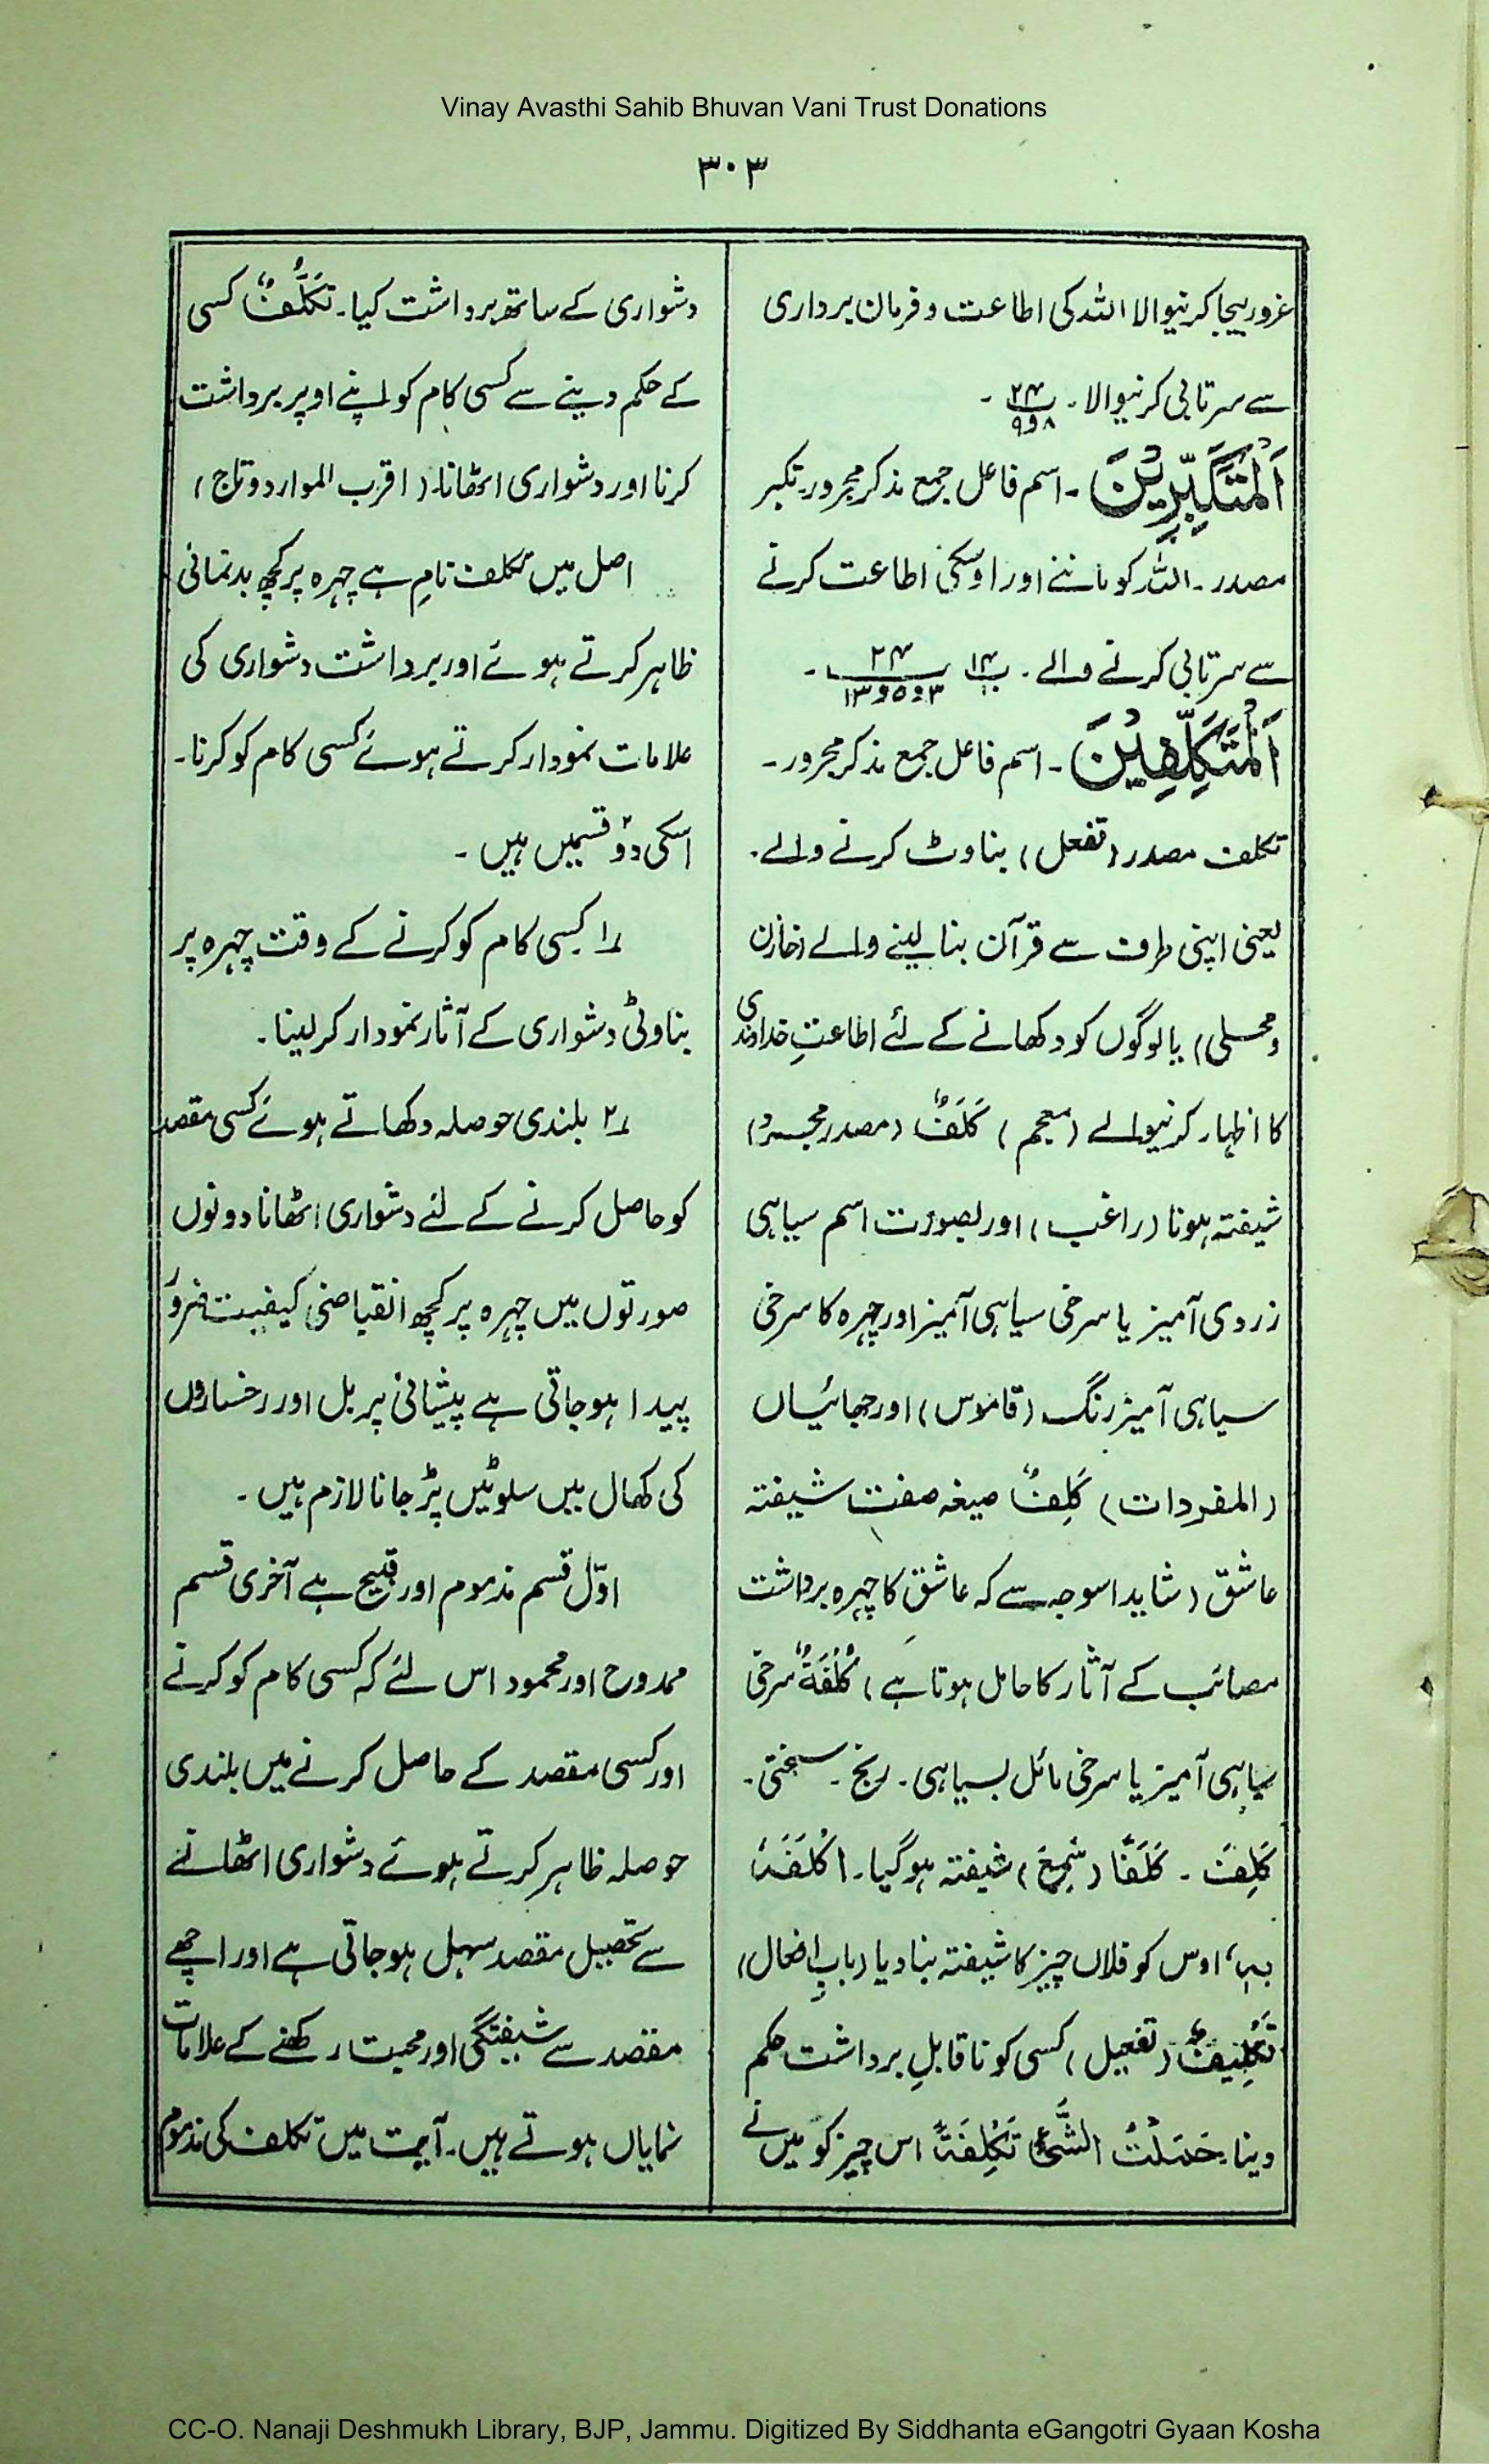 Vinay Avasthi Sahib Bhuvan Vani Trust Donations
۳۰۳
غرور بیجا کرنیوالا اللہ کی اطاعت و فرمان برداری
سے سرتابی کرنیوالا۔ ۲۴ / ۸و۹ ۔
اَلْمُتَکَبِّرِیْنَ ۔ اسم فاعل جمع مذکر مجرور۔ تکبر
مصدر۔ اللہ کو ماننے اور اوسکی اطاعت کرنے
سے سرتابی کرنے والے۔ ۲۴ / ۳و۵و۱۳ ۔
اَلْمُتَکَلِّفِیْنَ ۔ اسم فاعل جمع مذکر مجرور۔
تکلف مصدر (تفعل) بناوٹ کرنے والے۔
یعنی اپنی طرف سے قرآن بنا لینے والے (خازن
و محلی) یا لوگوں کو دکھانے کے لئے اطاعتِ خداوندی
کا اظہار کرنیوالے (معجم) کَلَفٌ (مصدر مجرد)
شیفتہ ہونا (راغب) اور بصورت اسم سیاہی
زردی آمیز یا سرخی سیاہی آمیز اور چہرہ کا سرخی
سیاہی آمیز رنگ (قاموس) اور جھائیاں
(المفردات) کَلِفٌ صیغہ صفت شیفتہ
عاشق (شاید اسوجہ سے کہ عاشق کا چہرہ برداشت
مصائب کے آثار کا حامل ہوتا ہے) کُلْفَۃٌ سرخی
سیاہی آمیز یا سرخی مائل بسیاہی۔ رنج۔ سختی۔
کَلِفَ ۔ کَلَفًا (سَمِعَ) شیفتہ ہوگیا۔ اَکْلَفَہٗ
بِہٖ، اوس کو فلاں چیز کا شیفتہ بنا دیا (بابِ افعال)
تَکْلِیْفٌ (تفعیل) کسی کو ناقابلِ برداشت حکم
دینا۔ حَمَلْتُ الشَّیْءَ تَکْلِفَۃً اس چیز کو میں نے
دشواری کے ساتھ برداشت کیا۔ تَکَلُّفٌ کسی
کے حکم دینے سے کسی کام کو اپنے اوپر برداشت
کرنا اور دشواری اٹھانا۔ (اقرب الموارد و تاج)
اصل میں تکلف نام ہے چہرہ پر کچھ بدنمائی
ظاہر کرتے ہوئے اور برداشت دشواری کی
علامات نمودار کرتے ہوئے کسی کام کو کرنا۔
اسکی دو۲ قسمیں ہیں ۔
۱؎ کسی کام کو کرنے کے وقت چہرہ پر
بناوٹی دشواری کے آثار نمودار کر لینا۔
۲؎ بلندی حوصلہ دکھاتے ہوئے کسی مقصد
کو حاصل کرنے کے لئے دشواری اٹھانا دونوں
صورتوں میں چہرہ پر کچھ انقباضی کیفیت ضرور
پیدا ہو جاتی ہے پیشانی پر بل اور رخساروں
کی کھال میں سلوٹیں پڑ جانا لازم ہیں ۔
اوّل قسم مذموم اور قبیح ہے آخری قسم
ممدوح اور محمود اس لئے کہ کسی کام کو کرنے
اور کسی مقصد کے حاصل کرنے میں بلندی
حوصلہ ظاہر کرتے ہوئے دشواری اٹھانے
سے تحصیل مقصد سہل ہو جاتی ہے اور اچھے
مقصد سے شیفتگی اور محبت رکھنے کے علامات
نمایاں ہوتے ہیں۔ آیت میں تکلف کی مذموم
CC-O. Nanaji Deshmukh Library, BJP, Jammu. Digitized By Siddhanta eGangotri Gyaan Kosha